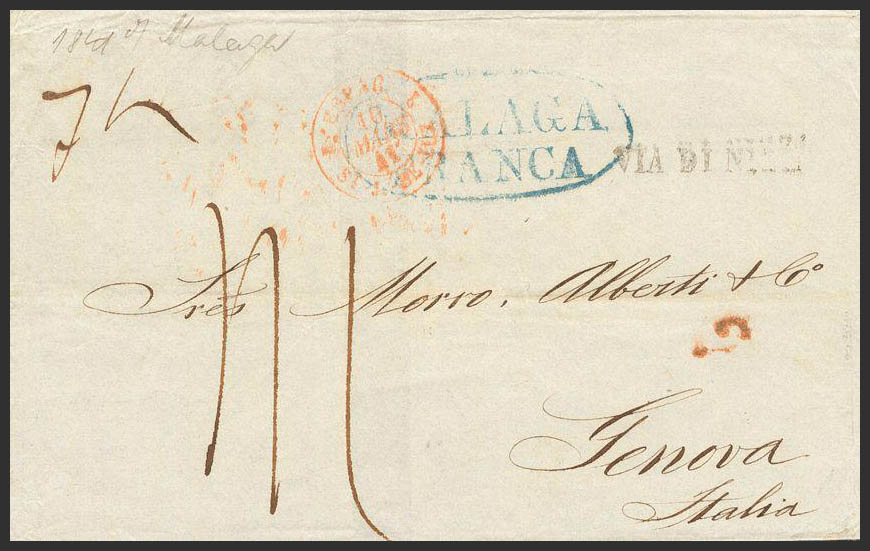 1841 Malaga
MALAGA
FRANCA
VIA DI NIZZA
18
MARS
41
Sres Morro, Alberti & Co
Genova
Italia